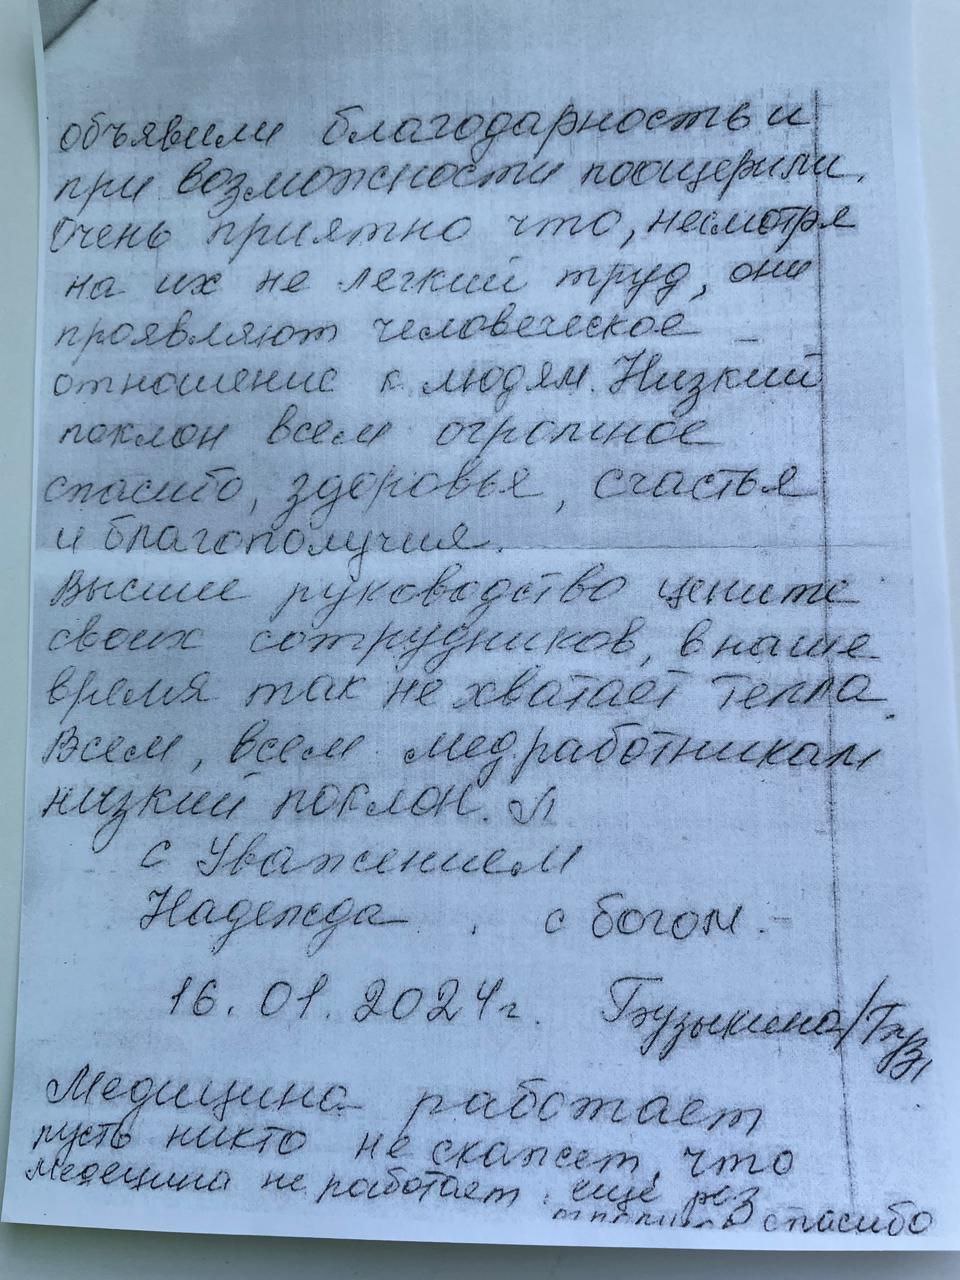 объявили благодарность и
при возможности поощерили.
Очень приятно что, несмотря
на их не легкий труд, они
проявляют человеческое
отношение к людям. Низкий
поклон всем огромное
спасибо, здоровья, счастья
и благополучия.
Высшие руководство цените
своих сотрудников, в наше
время так не хватает тепла.
Всем, всем медработникам
низкий поклон.
с Уважением
Надежда с богом.
16.01.2024г.
Медицина работает
пусть никто не скажет, что
медецина не работает еще раз
спасибо